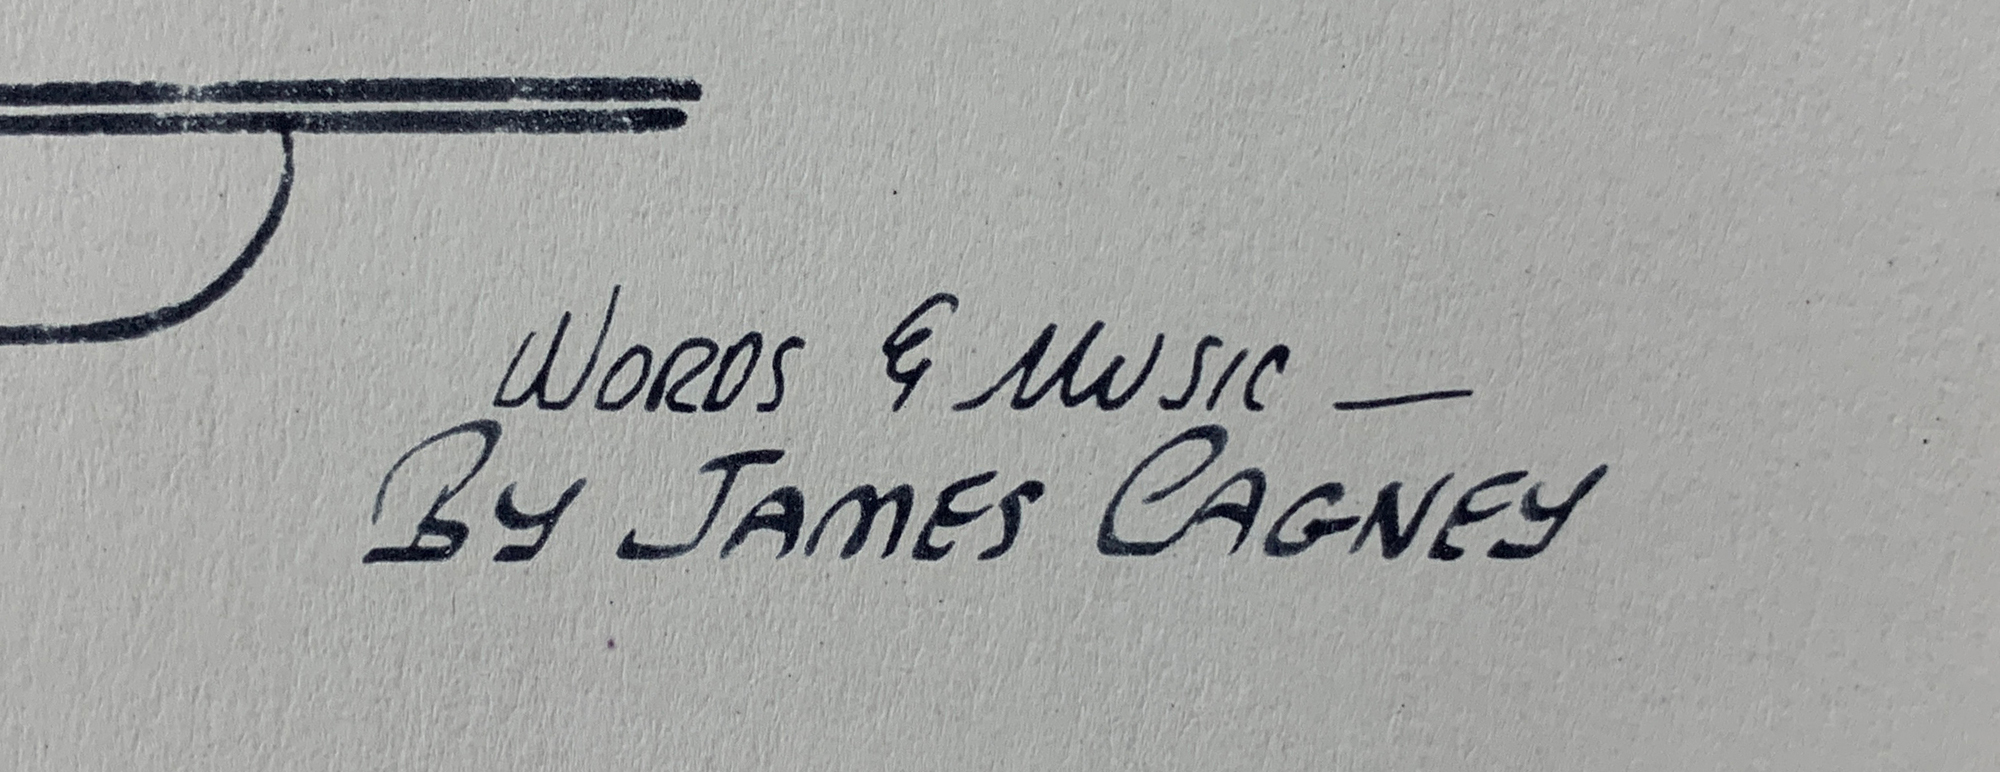 WORDS & MUSIC —
BY JAMES CAGNEY